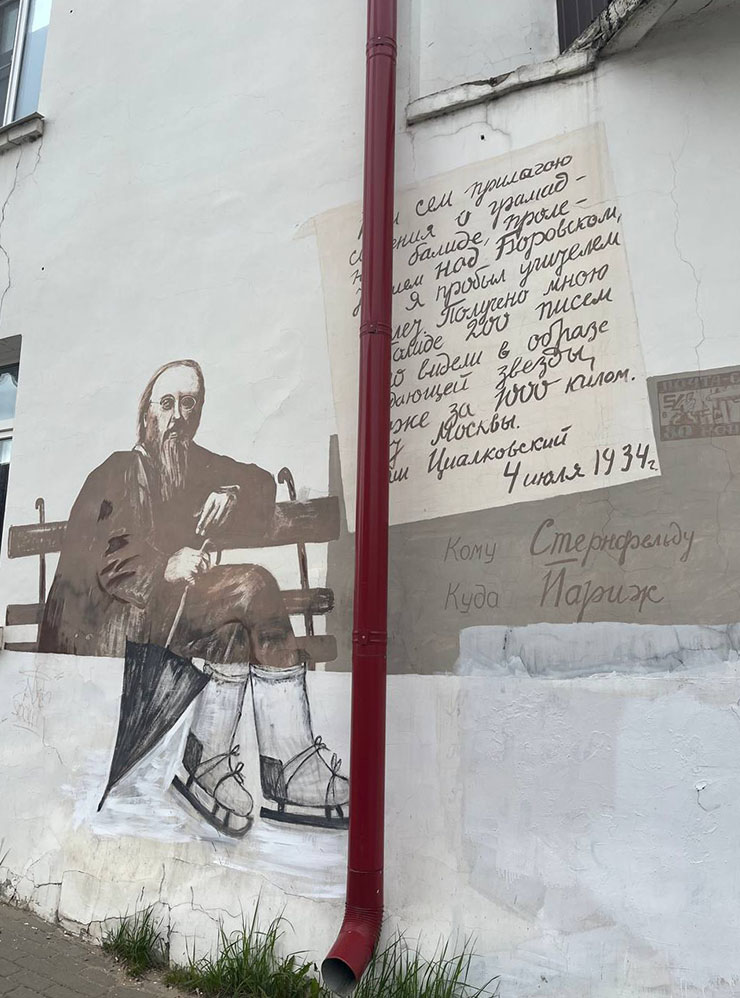 сем прилагаю
о грамад-
балиде, проле-
над Боровском,
я пробыл учителем
лет. Получено мною
балиде 200 писем
видели в образе
звезды,
за 1000 килом.
Москвы.
Циалковский
4 июля 1934г.
ПОЧТА
Кому Стернфельду
Куда Париж